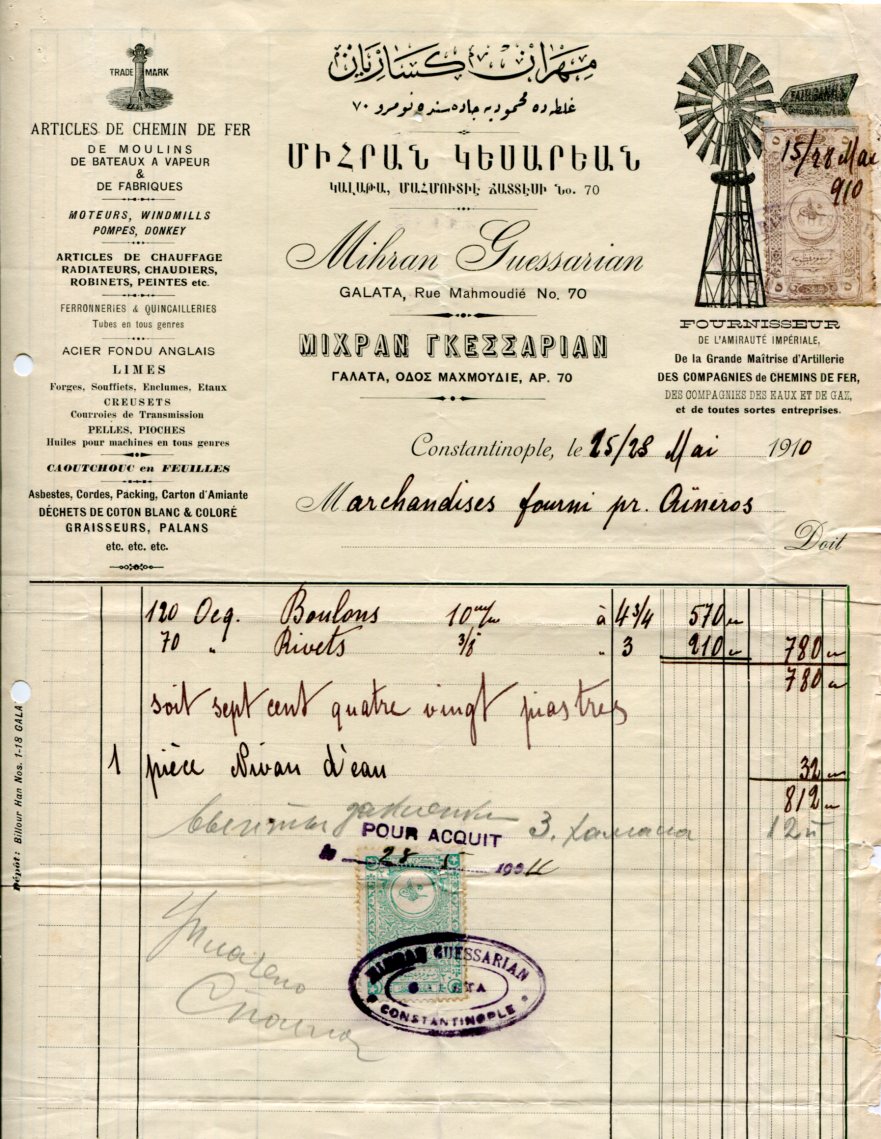 TRADE MARK
ARTICLES DE CHEMIN DE FER
DE MOULINS
DE BATEAUX A VAPEUR
&
DE FABRIQUES
MOTEURS, WINDMILLS
POMPES, DONKEY
ARTICLES DE CHAUFFAGE
RADIATEURS, CHAUDIERS,
ROBINETS, PEINTES etc.
FERRONNERIES & QUINCAILLERIES
Tubes en tous genres
ACIER FONDU ANGLAIS
LIMES
Forges, Soufflets, Enclumes, Etaux
CREUSETS
Courroies de Transmission
PELLES, PIOCHES
Huiles pour machines en tous genres
CAOUTCHOUC en FEUILLES
Asbestes, Cordes, Packing, Carton d'Amiante
DÉCHETS DE COTON BLANC & COLORÉ
GRAISSEURS, PALANS
etc. etc. etc.
مهران كساريان
غلطه ده محموديه جاده سنده نومرو ٧٠
ՄԻՀՐԱՆ ԿԵՍԱՐԵԱՆ
ԿԱԼԱԹԱ, ՄԱՀՄՈՒՏԻԷ ՃԱՏՏԷՍԻ No. 70
Mihran Guessarian
GALATA, Rue Mahmoudié No. 70
ΜΙΧΡΑΝ ΓΚΕΣΣΑΡΙΑΝ
ΓΑΛΑΤΑ, ΟΔΟΣ ΜΑΧΜΟΥΔΙΕ, ΑΡ. 70
FAIRBANKS
15/28 Mai
910
FOURNISSEUR
DE L'AMIRAUTÉ IMPÉRIALE,
De la Grande Maîtrise d'Artillerie
DES COMPAGNIES de CHEMINS DE FER,
DES COMPAGNIES DES EAUX ET DE GAZ,
et de toutes sortes entreprises.
Constantinople, le 15/28 Mai 1910
Marchandises fourni pr. Aïneros
Doit
120 Ocq. Boulons 10 m/m à 4 3/4 570
70 " Rivets 3/8 " 3 210 780
780
soit sept cent quatre vingt piastres
1 pièce Nivau d'eau 32
812
12
POUR ACQUIT
le 28 5 1911
MIHRAN GUESSARIAN
GALATA
CONSTANTINOPLE
Dépôt: Billour Han Nos. 1-18 GALA